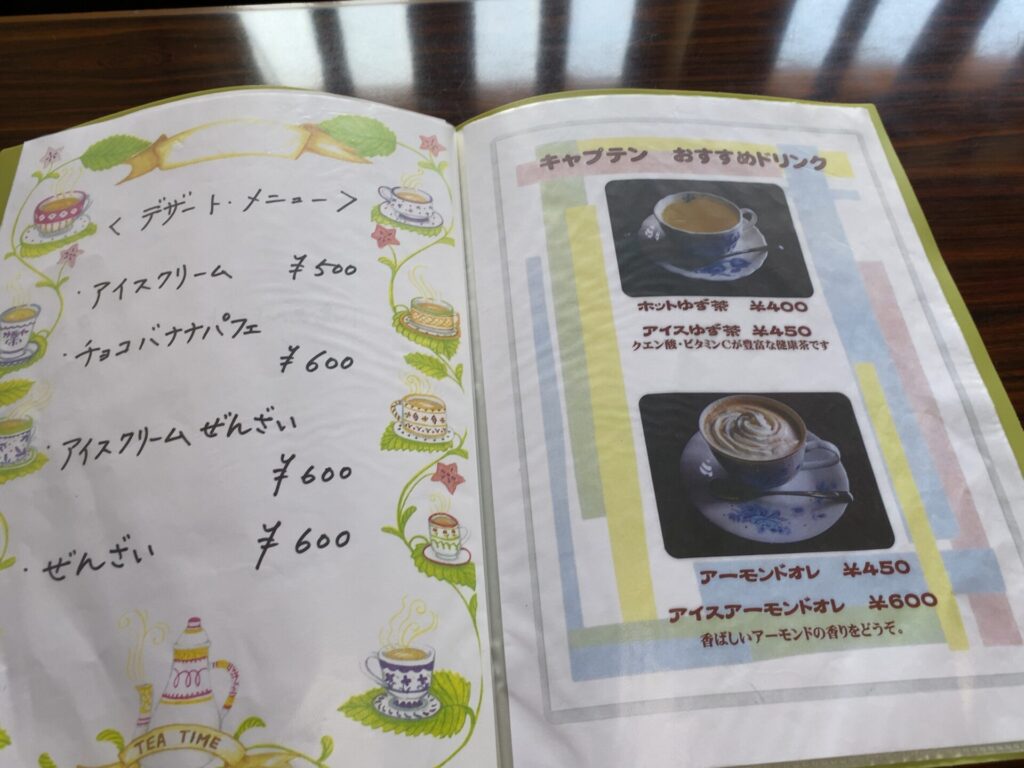 < デザート・メニュー >
・アイスクリーム ¥500
・チョコバナナパフェ
¥600
・アイスクリームぜんざい
¥600
・ぜんざい ¥600
TEA TIME
キャプテン おすすめドリンク
ホットゆず茶 ¥400
アイスゆず茶 ¥450
クエン酸・ビタミンCが豊富な健康茶です
アーモンドオレ ¥450
アイスアーモンドオレ ¥600
香ばしいアーモンドの香りをどうぞ。